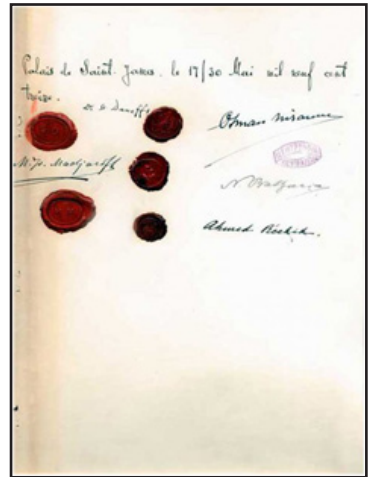 Palais de Saint. James. le 17/30 Mai mil neuf cent
treize.
Dr. S. Daneff
Osman Nizamy
Madjaroff
N. Batzaria
Ahmed Réchid.